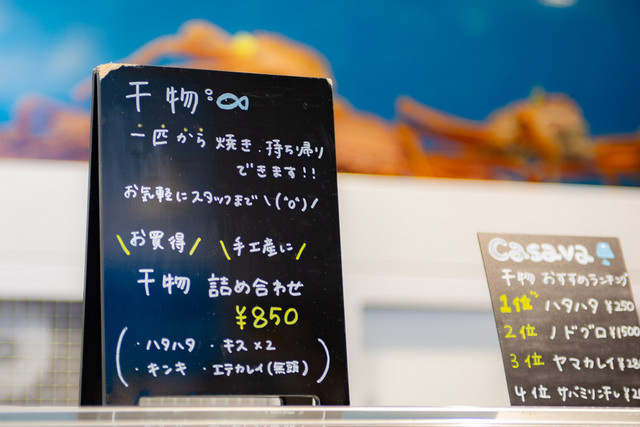 干物
一匹から焼き・持ち帰り
できます!!
お気軽にスタッフまで\(^o^)/
\お買得/ \手工産に/
干物 詰め合わせ
¥850
(・ハタハタ ・キス×2
・キンキ ・エテカレイ(無頭))
Casava
干物 おすすめランキング
1位 ハタハタ ¥250
2位 ノドグロ ¥1500
3位 ヤマカレイ
4位 サバミリン干し